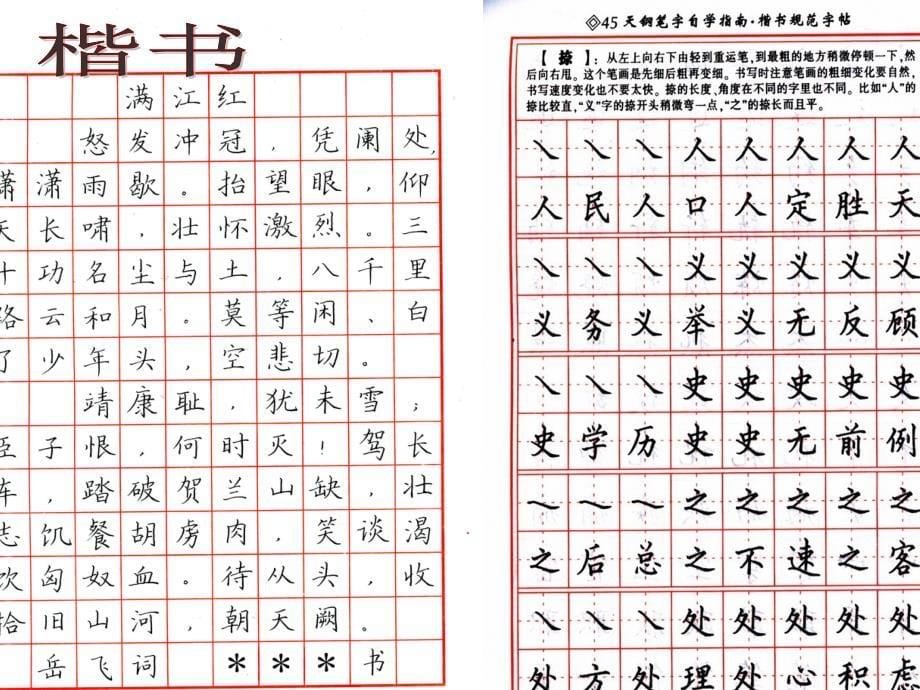 楷书
满江红
怒发冲冠，凭阑处，
潇潇雨歇。抬望眼，仰
天长啸，壮怀激烈。三
十功名尘与土，八千里
路云和月。莫等闲、白
了少年头，空悲切。
靖康耻，犹未雪；
臣子恨，何时灭！驾长
车，踏破贺兰山缺，壮
志饥餐胡虏肉，笑谈渴
饮匈奴血。待从头，收
拾旧山河，朝天阙。
岳飞词 ＊＊＊书
45天钢笔字自学指南·楷书规范字帖
【捺】：从左上向右下由轻到重运笔，到最粗的地方稍微停顿一下，然
后向右甩。这个笔画是先细后粗再变细。书写时注意笔画的粗细变化要自然，
书写速度变化也不要太快。捺的长度、角度在不同的字里也不同。比如“人”的
捺比较直，“义”字的捺开头稍微弯一点，“之”的捺长而且平。
㇏㇏㇏人人人人人
人民人口人定胜天
㇏㇏㇏义义义义义
义务义举义无反顾
㇏㇏㇏史史史史史
史学历史史无前例
㇏㇏㇏之之之之之
之后总之不速之客
㇏㇏㇏处处处处处
处方处理处心积虑